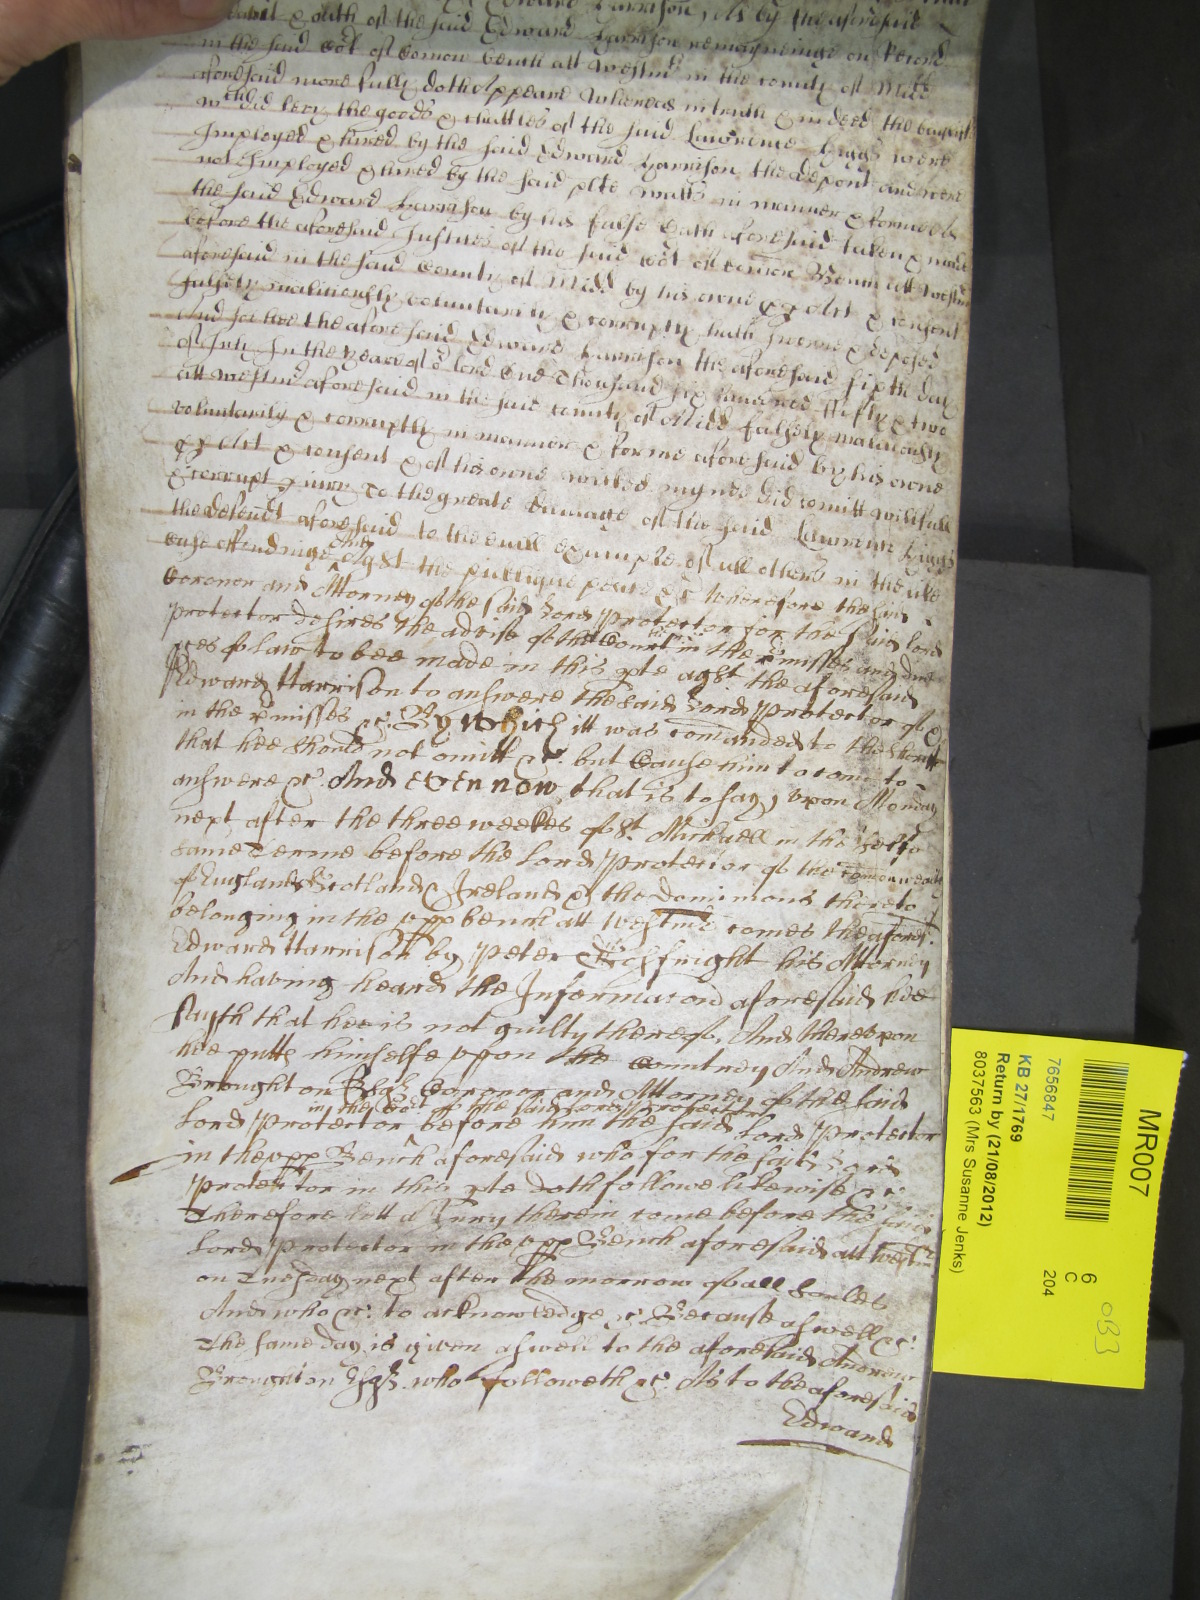 Edward Harrison, As by the aforesaid
& oath of the said Edward Harrison remayneinge on Record
in the said Cort of Comon bench att Westmr in the County of Midd
aforesaid more fully doth Appeare Whereas in truth & indeed the
wch did bere the goods & chattles of the said Lawrence Higgs were
Imployed & hired by the said Edward Harrison the depont and were
not Imployed & hired by the said in manner & forme as
the said Edward Harrison by his false oath aforesaid taken & made
before the aforesaid Justices of the said Cort of Comon Bench att Westmr
aforesaid in the said County of Midd by his owne p Act & consent
falsely malitiously voluntarily & corruptly hath sworne & deposed
And soe hee the aforesaid Edward Harrison the aforesaid sixth day
of July In the yeare of or lord One Thousand six hundred ffifty & two
att Westmr aforesaid in the said County of Midd falsely malitiously
voluntarily & corruptly in manner & forme aforesaid by his owne
p Act & consent & of his owne wicked mynde did comitt willfull
& corrupt piury To the greate damage of the said Lawrence Higgs
the defendt aforesaid to the evill example of all others in the like
case offendinge And Agst the publique peace &c Wherefore the said
Coronor and Attorney of the said Lord Protector for the said lord
Protector desires the advise of the Court in the pmisses and due
pces of law to bee made in this pte agst the aforesaid
Edward Harrison to answere the said Lord Protector of &
in the pmisses &c. By which itt was comanded to the Sheriff
that hee should not omitt &c. but Cause him to come to
answere &c And even now, that is to say, vpon Monday
next after the three weekes of St. Michaell in the selfe
same Terme before the Lord Protector of the Comonwealth
of England Scotland & Ireland & the Dominions thereto
belonging in the vpp bench att Westmr comes the aforesd
Edward Harrison by Peter his Attorney
And having heard the Informacon aforesaid hee
sayth that hee is not guilty thereof, And therevpon
hee putts himselfe vpon the Countrey And Andrew
Broughton Esqr Coronor and Attorney of the said
in the Cort of the said Lord Protector
Lord Protector before him the said Lord Protector
in the vpp Bench aforesaid who for the said Lord
Protector in this pte doth followe likewise &c
Therefore lett a Jury therein come before the said
Lord Protector in the vpp Bench aforesaid att Westmr
on Tuesday next after the morrow of all Soules
And who &c. to acknowledge &c. Because aswell &c.
The same day is given aswell to the aforesaid Andrew
Broughton Esqr. who followeth &c. As to the aforesaid
Edward
MR007
6
C
204
083
7656847
KB 27/1769
Return by (21/08/2012)
8037563 (Mrs Susanne Jenks)